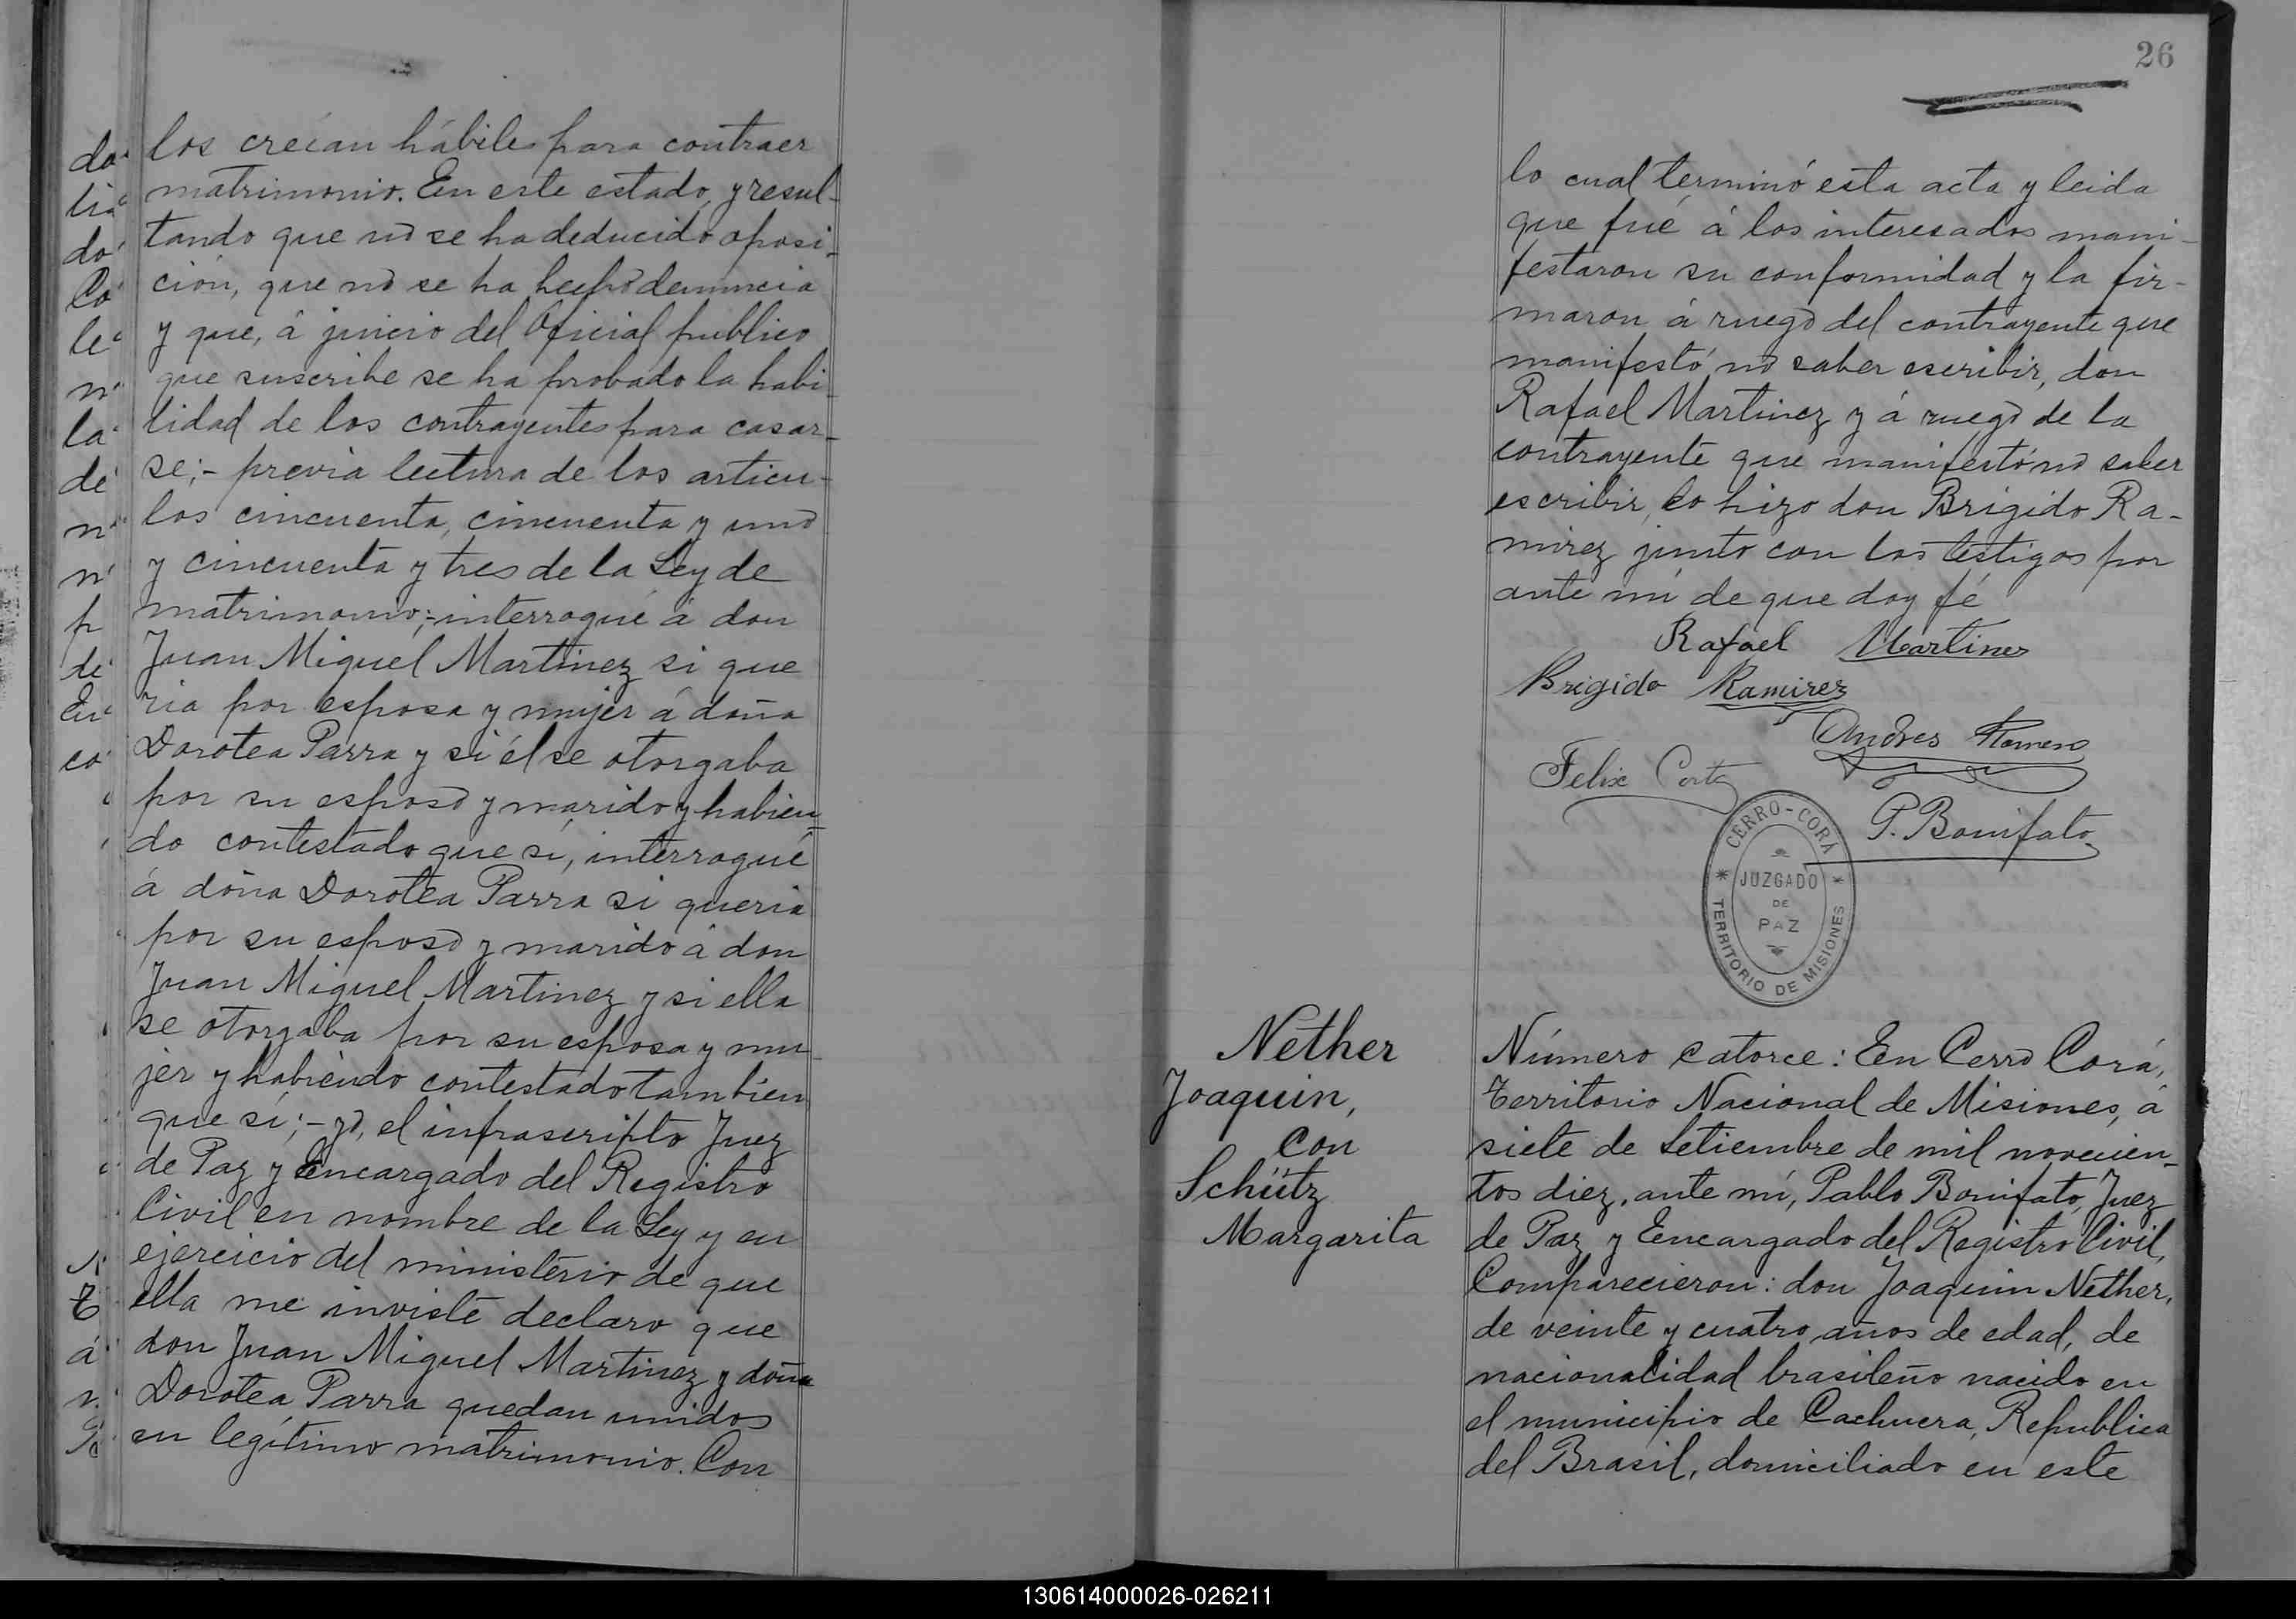 los creían hábiles para contraer
matrimonio. En este estado, y resul-
tando que no se ha deducido oposi-
ción, que no se ha hecho denuncia
y que, á juicio del Oficial publico
que suscribe se ha probado la habi-
lidad de los contrayentes para casar-
se;- previa lectura de los articu-
los cincuenta, cincuenta y uno
y cincuenta y tres de la Ley de
matrimonio;- interrogué á don
Juan Miguel Martinez si que
ria por esposa y mujer á doña
Dorotea Parra y si él se otorgaba
por su esposo y marido y habien-
do contestado que sí, interrogué
á doña Dorotea Parra si queria
por su esposo y marido á don
Juan Miguel Martinez y si ella
se otorgaba por su esposa y mu-
jer y habiendo contestado tambien
que sí;- yo, el infrascripto Juez
de Paz y Encargado del Registro
Civil en nombre de la Ley y en
ejercicio del ministerio de que
ella me inviste declaro que
don Juan Miguel Martinez y doña
Dorotea Parra quedan unidos
en legítimo matrimonio. Con
26
lo cual terminó esta acta y leida
que fué á los interesados mani-
festaron su conformidad y la fir-
maron á ruego del contrayente que
manifestó no saber escribir, don
Rafael Martinez y á ruego de la
contrayente que manifestó no saber
escribir, lo hizo don Brigido Ra-
mirez junto con los testigos por
ante mí de que doy fé
Rafael Martinez
Brigido Ramirez
Andres Romero
Felix
P. Bonifato
CERRO-CORÁ
JUZGADO
DE
PAZ
* TERRITORIO DE MISIONES *
Nether
Joaquin,
con
Schütz
Margarita
Número catorce: En Cerro Corá,
Territorio Nacional de Misiones, á
siete de Setiembre de mil novecien-
tos diez, ante mí, Pablo Bonifato, Juez
de Paz y Encargado del Registro Civil,
Comparecieron: don Joaquin Nether,
de veinte y cuatro años de edad, de
nacionalidad brasileño nacido en
el municipio de Cachuera, Republica
del Brasil, domiciliado en este
130614000026-026211